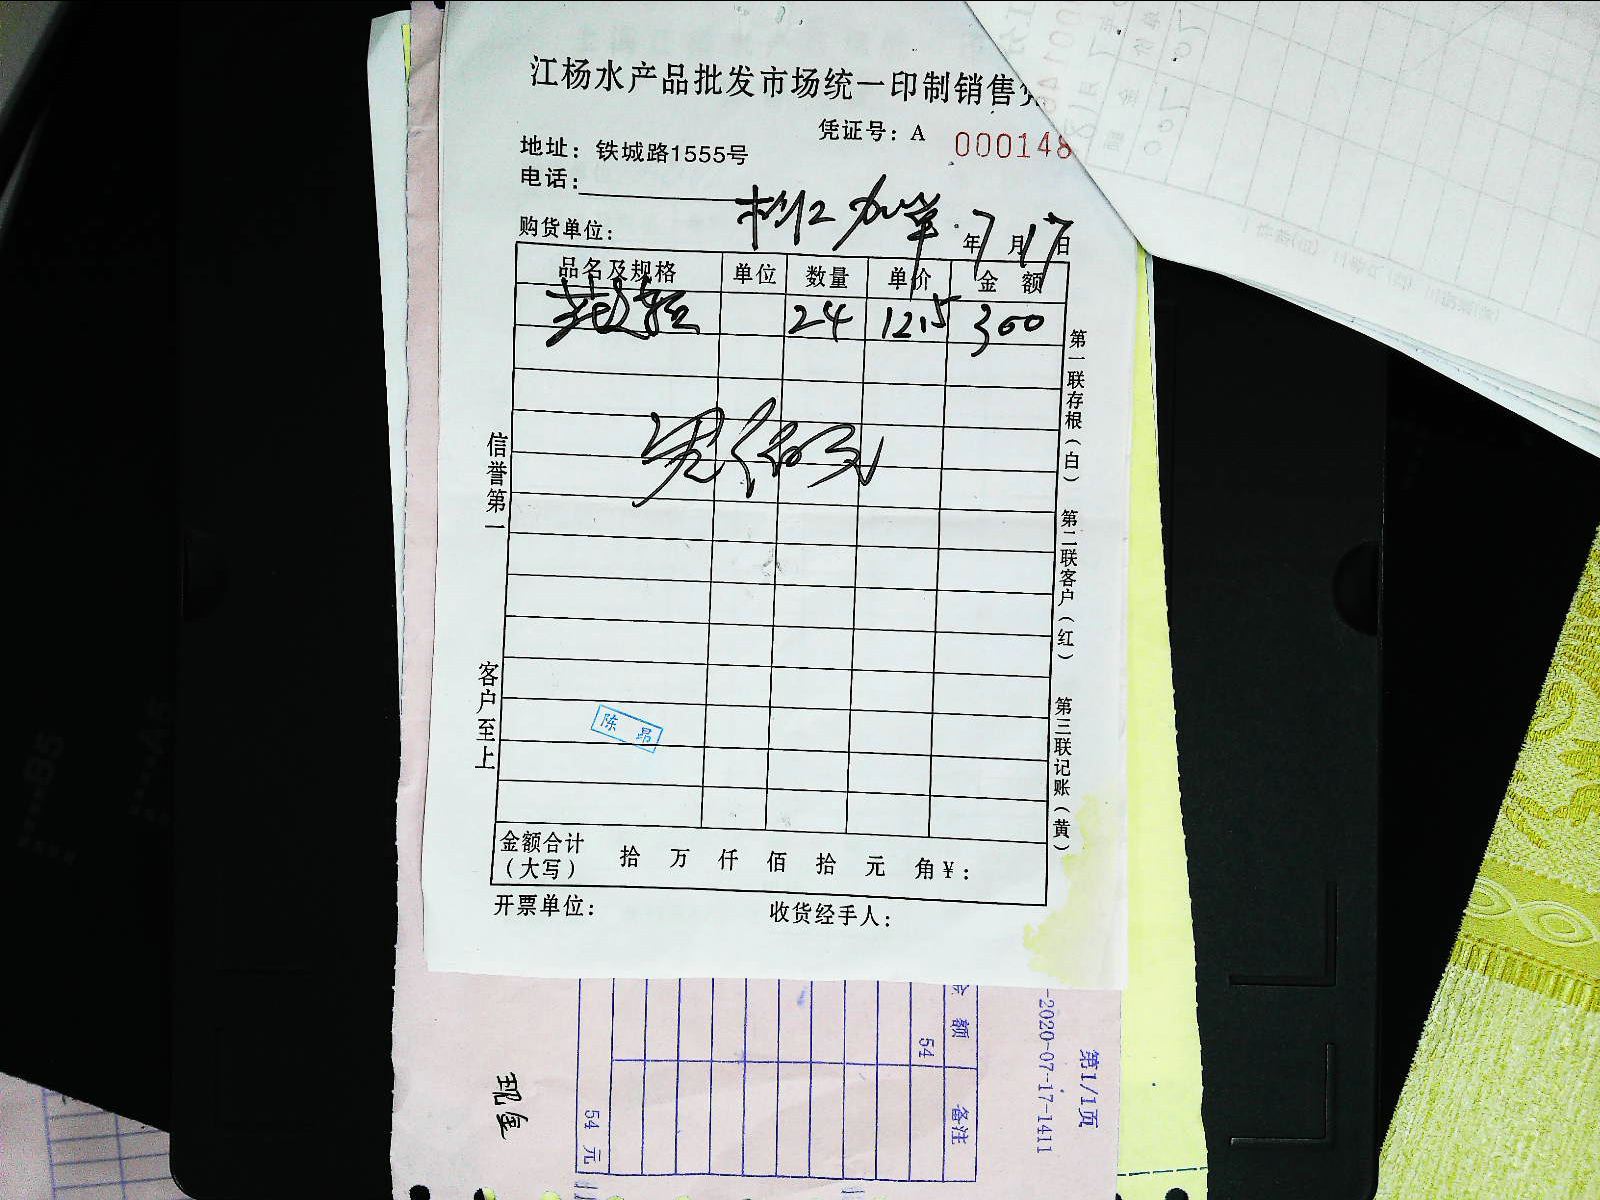 江杨水产品批发市场统一印制销售
凭证号：A 000148
地址：铁城路1555号
电话：
购货单位：
年 7 月 17 日
品名及规格 单位 数量 单价 金 额
24 12.5 300
信誉第一
客户至上
第一联存根（白）
第二联客户（红）
第三联记账（黄）
陈 昂
金额合计（大写） 拾 万 仟 佰 拾 元 角 ¥：
开票单位： 收货经手人：
金 额 备注
54
54 元
-2020-07-17-1411
第1/1页
现金